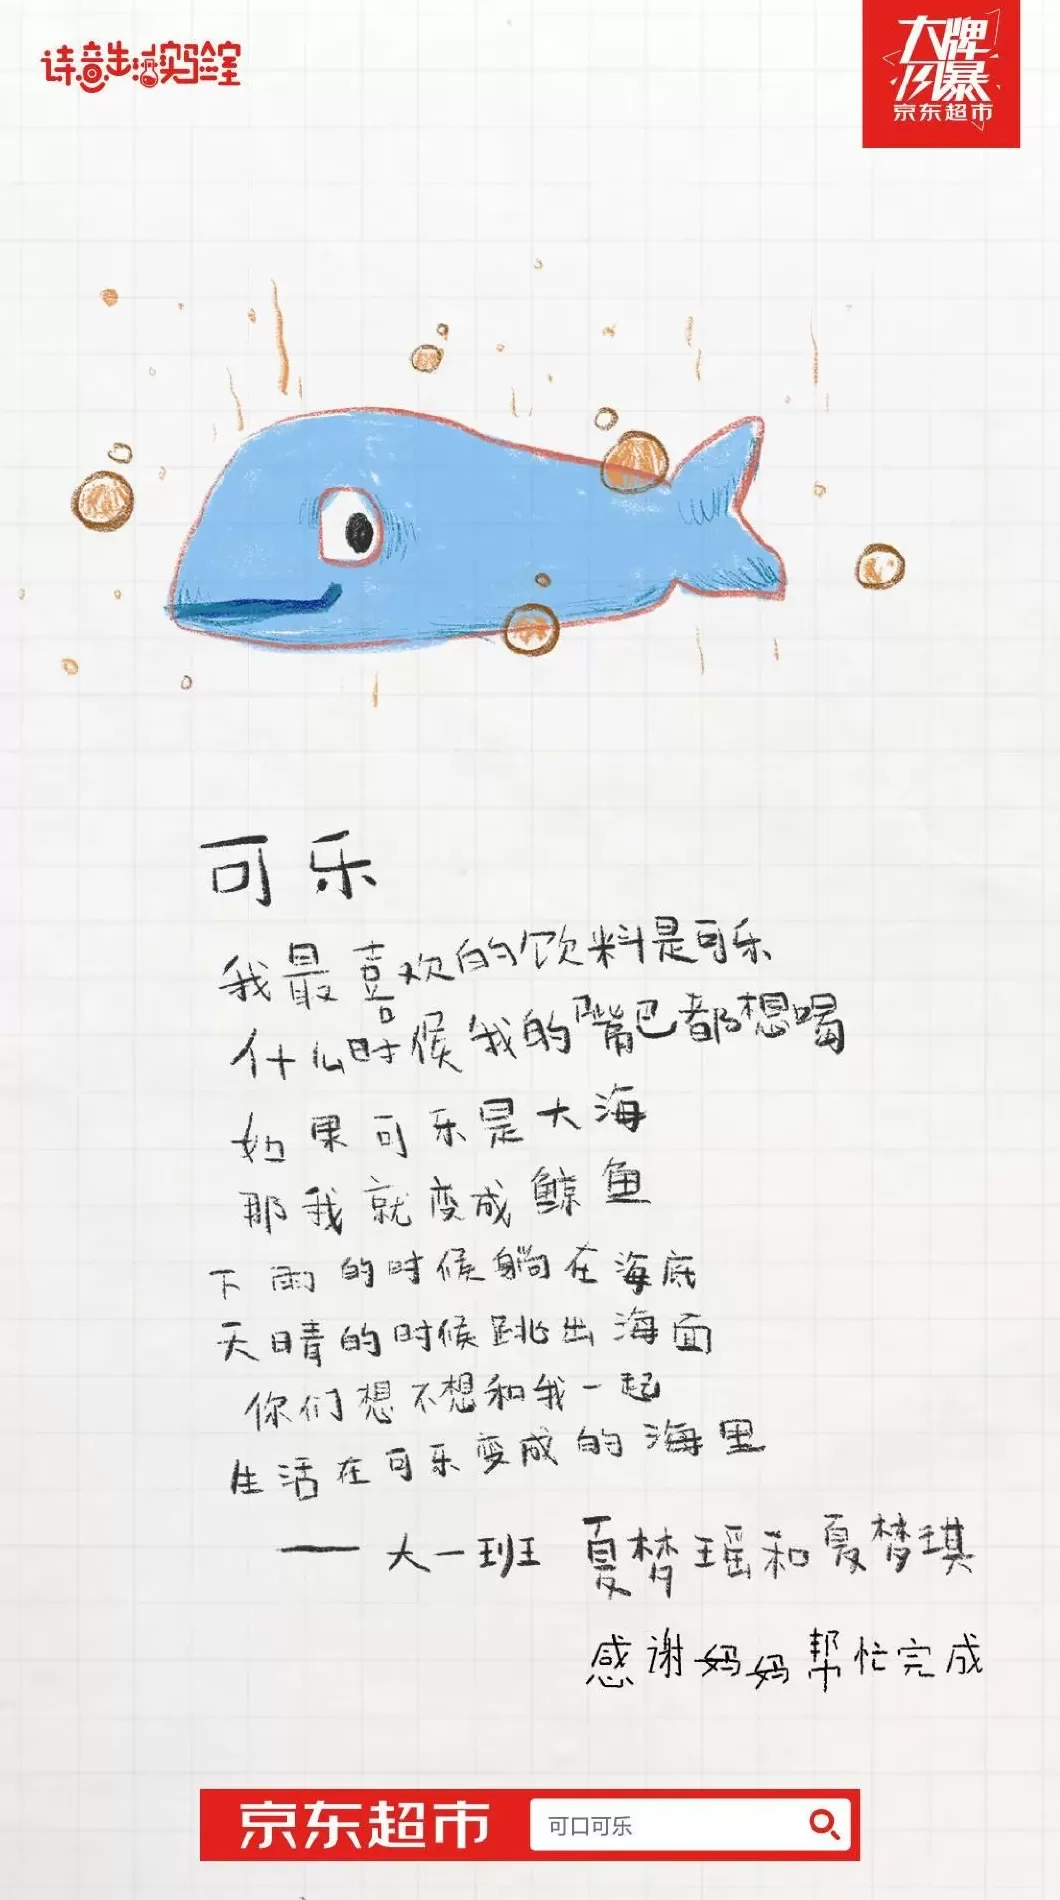 诗意生活实验室
大牌
风暴
京东超市
可乐
我最喜欢的饮料是可乐
什么时候我的嘴巴都想喝
如果可乐是大海
那我就变成鲸鱼
下雨的时候躺在海底
天晴的时候跳出海面
你们想不想和我一起
生活在可乐变成的海里
—— 大一班 夏梦瑶和夏梦琪
感谢妈妈帮忙完成
京东超市 可口可乐